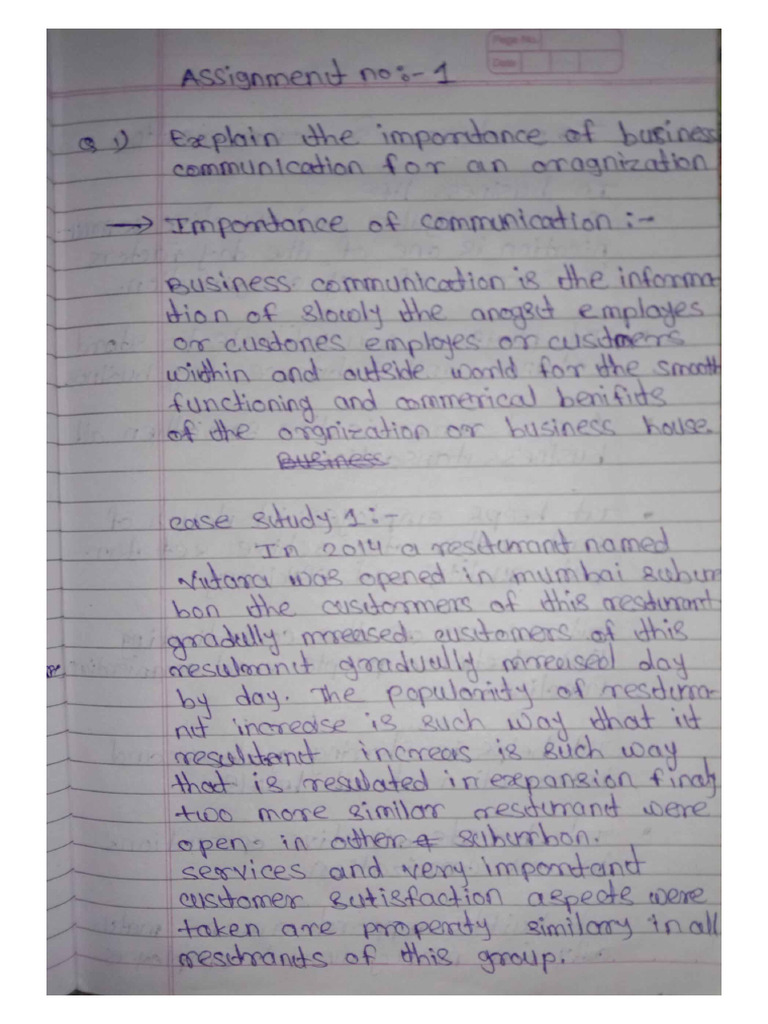 Page No.
Date
Assignment no:- 1
Q 1) Explain the importance of business
communication for an oragnization
→ Importance of communication :-
Business communication is the informa
tion of slowly the anogst employes
or custones employes or customers
within and outside world for the smooth
functioning and commerical benifits
of the orgnization or business house.
Business
case study 1:-
In 2014 a resturant named
was opened in mumbai subur
bon the custormers of this resturant
gradully mreased. customers of this
resulrant gradually mreaised day
by day. The popularity of restura-
nt increase is such way that it
resultant increas is such way
that is resulated in expansion finaly
two more similar resturant were
open in other suburbon.
services and very important
customer sutisfaction aspects were
taken are properity similarry in all
restrants of this group.